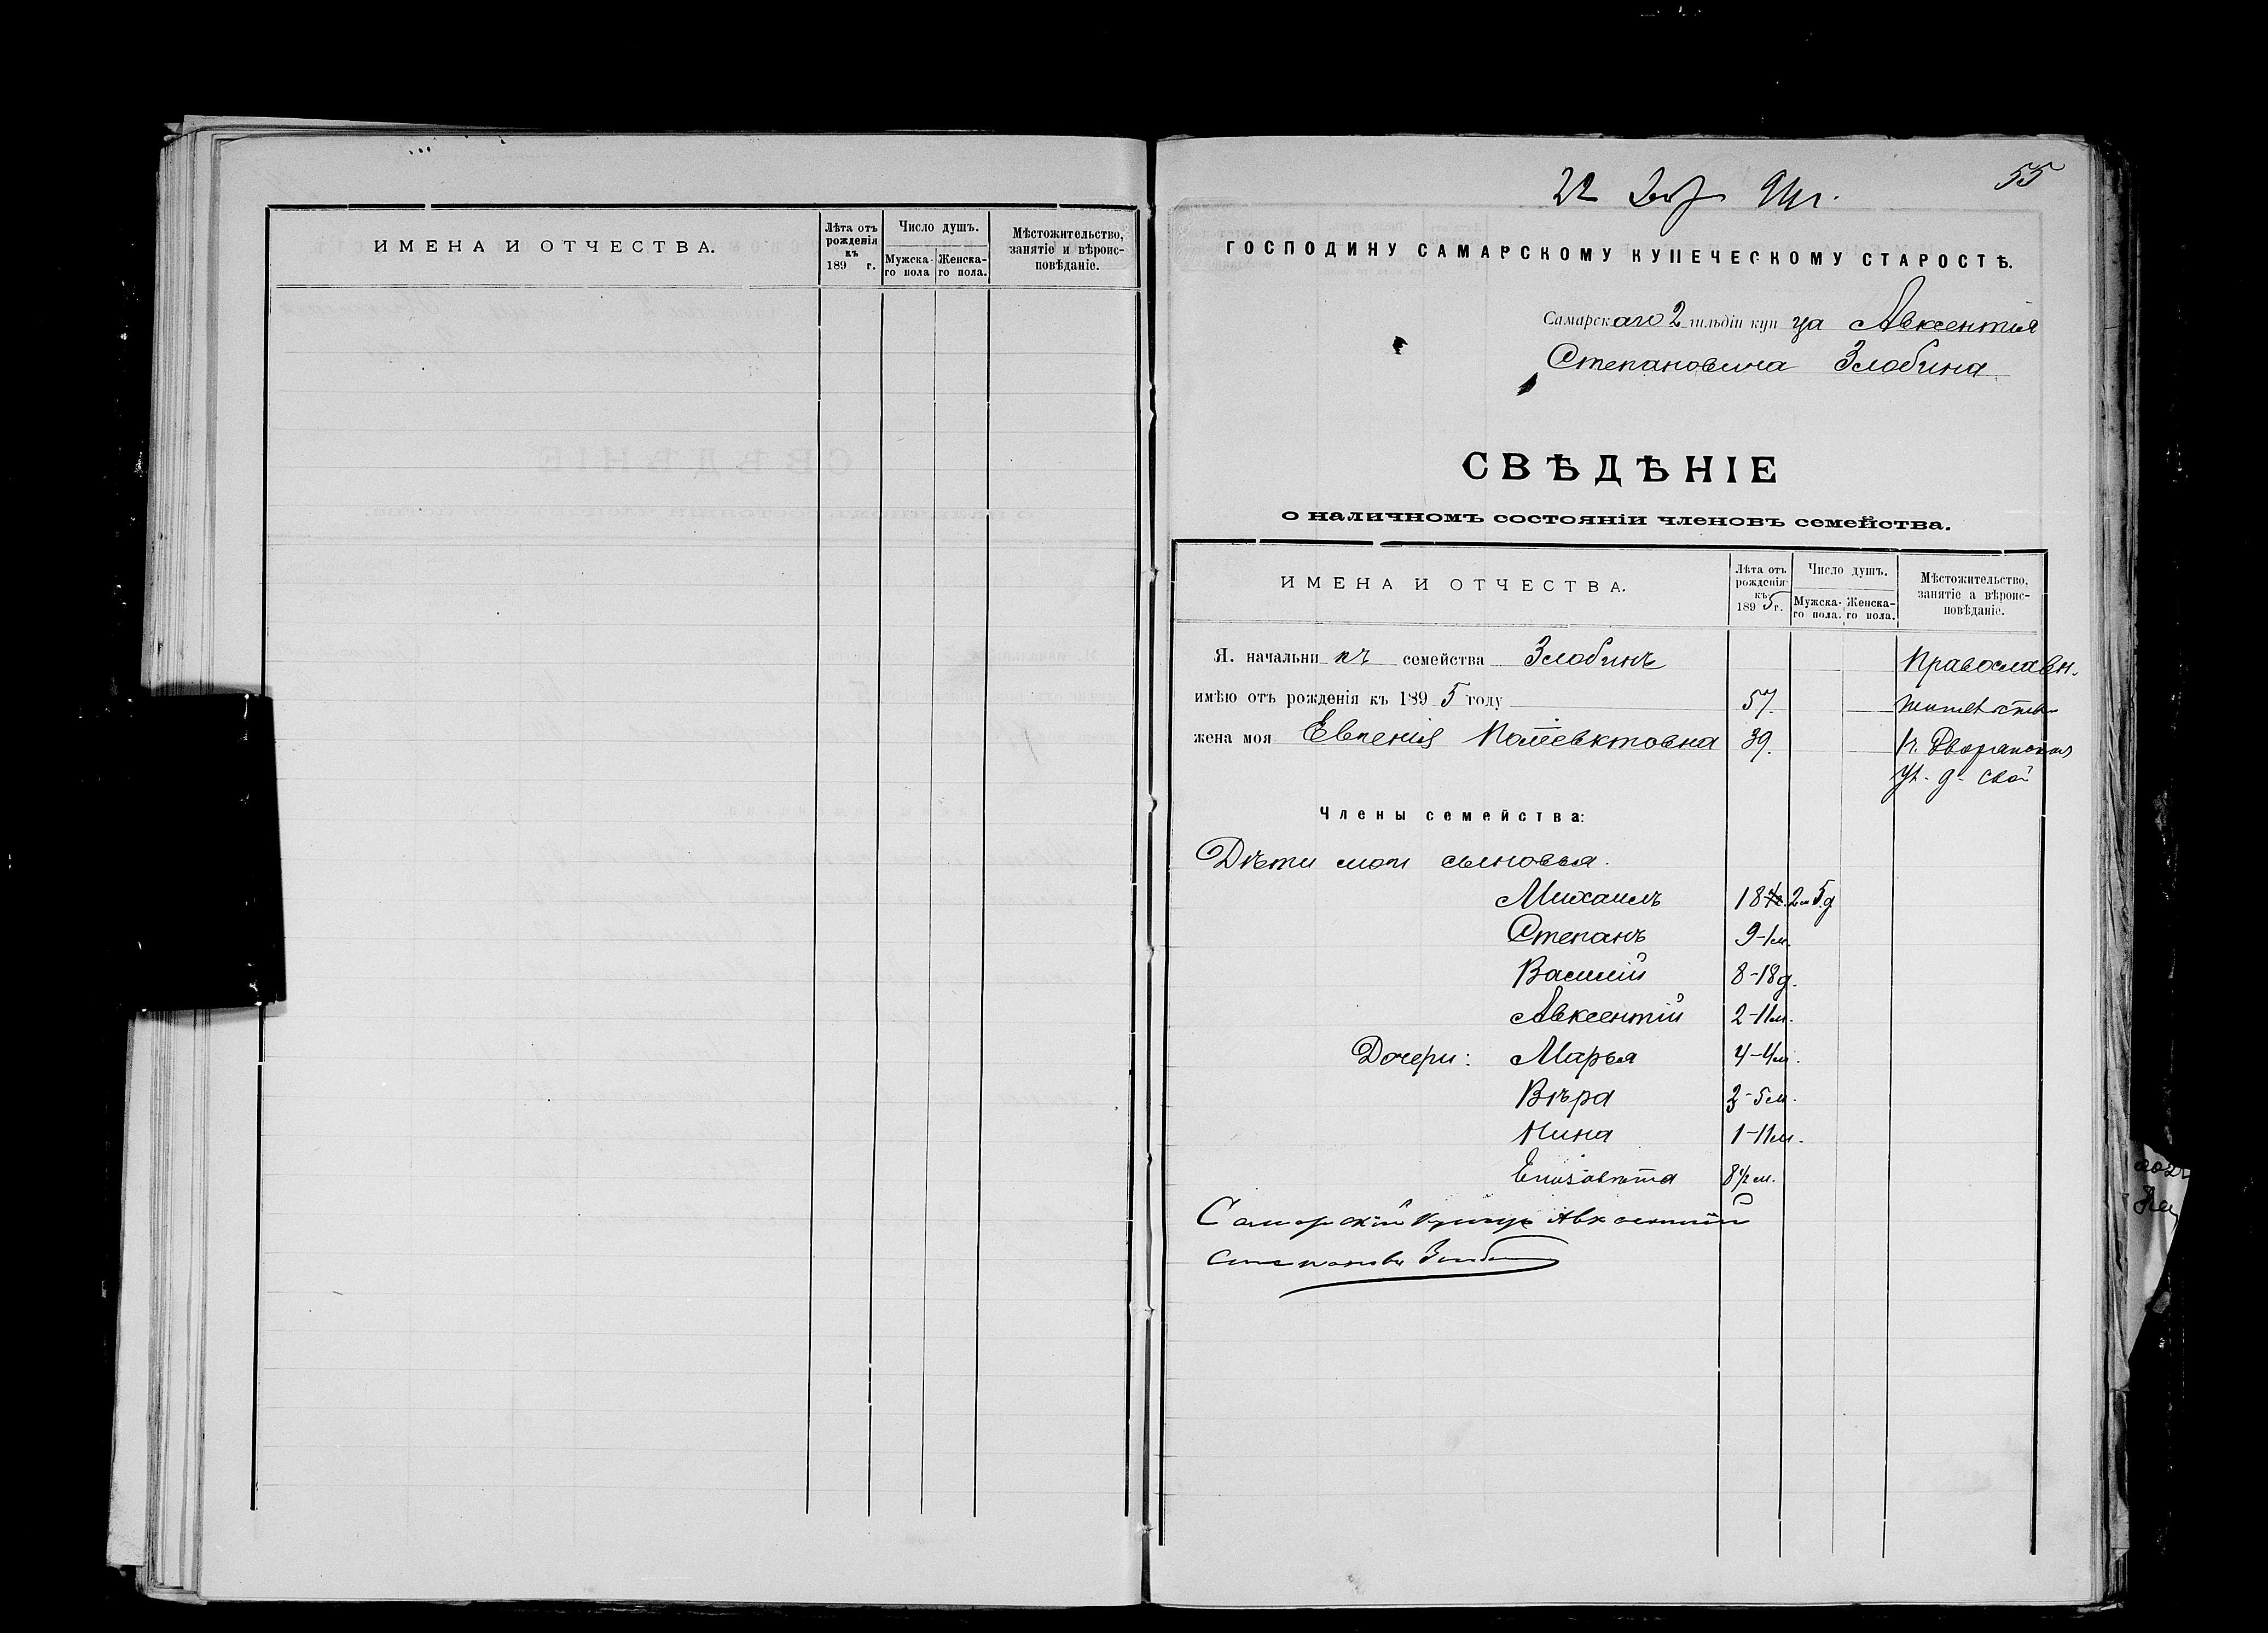 ИМЕНА И ОТЧЕСТВА.
Лѣта отъ рожденія къ 189 г.
Число душъ.
Мужска-го пола
Женска-го пола.
Мѣстожительство, занятіе и вѣроис-повѣданіе.
55
22
ГОСПОДИНУ САМАРСКОМУ КУПЕЧЕСКОМУ СТАРОСТѢ.
Самарскаго 2 гильдіи купца Авксентія
Степановича Злобина
СВѢДѢНІЕ
о наличномъ состояніи членовъ семейства.
ИМЕНА И ОТЧЕСТВА.
Лѣта отъ рожденія къ 1895 г.
Число душъ.
Мужска-го пола.
Женска-го пола.
Мѣстожительство, занятіе а вѣроис-повѣданіе.
Я. начальникъ семейства Злобинъ Православн.
имѣю отъ рожденія къ 1895 году 57.
жена моя Евгенія Поліевктовна 39. Дворянская
ул. д. свой
Члены семейства:
Дѣти мои сыновья.
Михаилъ 18 2м 5д
Степанъ 9-1м.
Василій 8-18д.
Авксентій 2-11м.
Дочери: Марья 4-4м.
Вѣра 3-5м.
Нина 1-11м.
Елизавѣта 8½м.
Самарскій Купецъ Авксентій
Степановъ Злобинъ